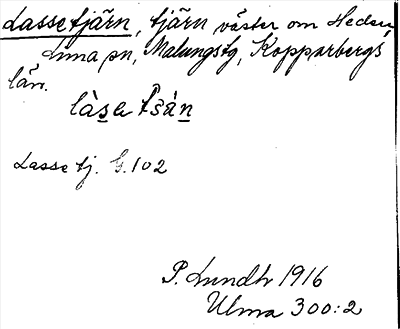 Lassetjärn, tjärn väster om Heden,
Lima sn, Malungs tg, Kopparbergs
län.
làsetšàn
Lasse tj. G. 102
P. Lundh 1916
Ulma 300:2